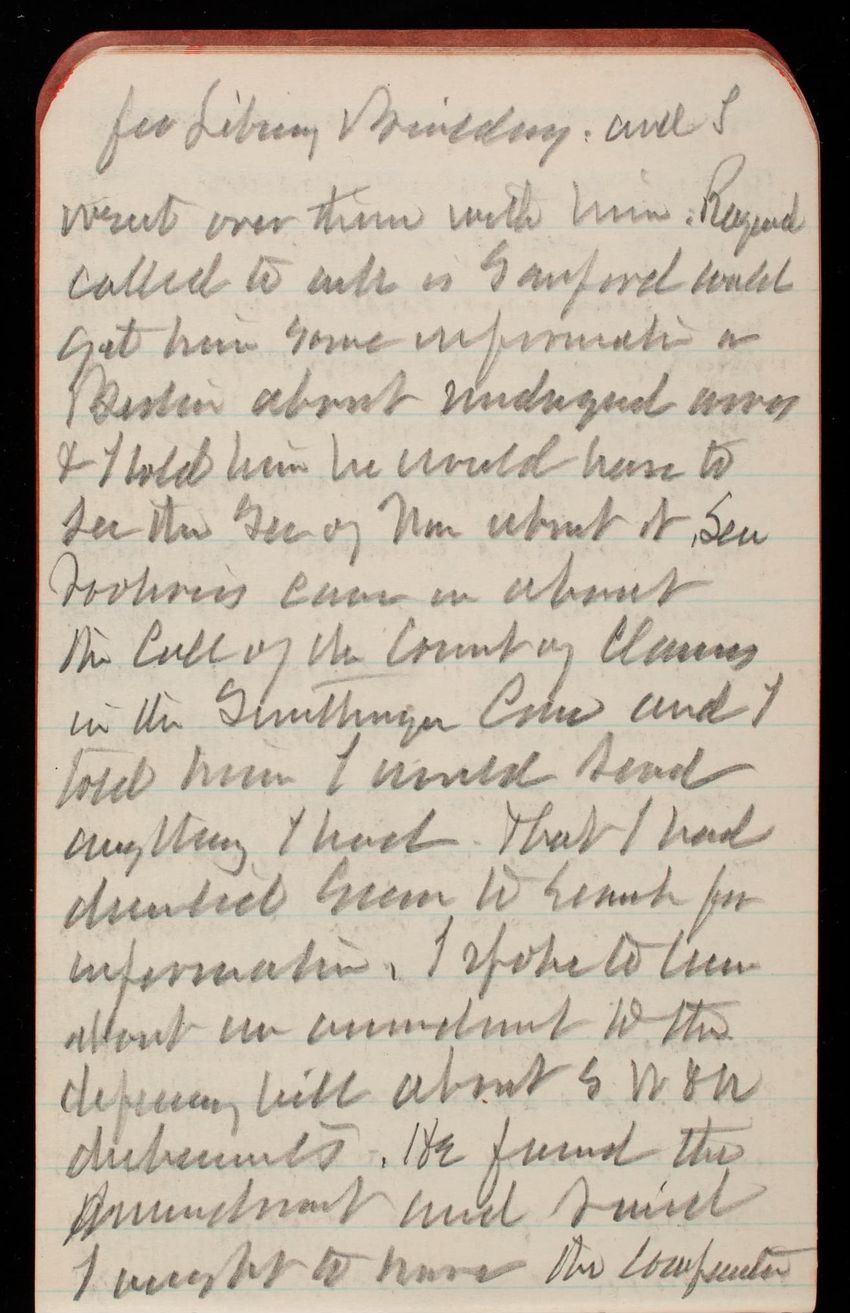 for Library Building. and I
went over them with him.
called to ask is Sanford would
get him some information
about
& I told him he would have to
see the Sec of War about it. Sen
came in about
the Call of the Court of Claims
in the Case and I
told him I would send
anything I had. That I had
directed Green to search for
information. I spoke to him
about an amendment to the
deficiency bill about
disbursements. He found the
Amendment and said
I ought to have the